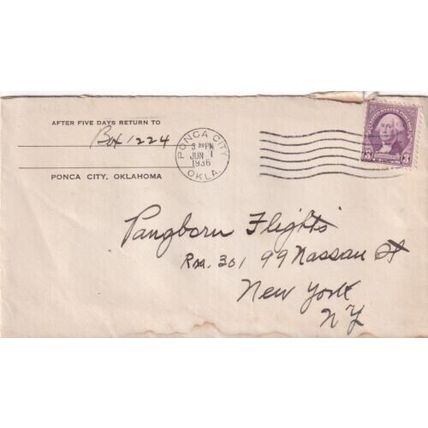 AFTER FIVE DAYS RETURN TO
Box 1224
PONCA CITY, OKLAHOMA
PONCA CITY
JUN 1
1936
OKLA.
3 3
Pangborn Flights
Rm. 301 99 Nassau St
New York
NY